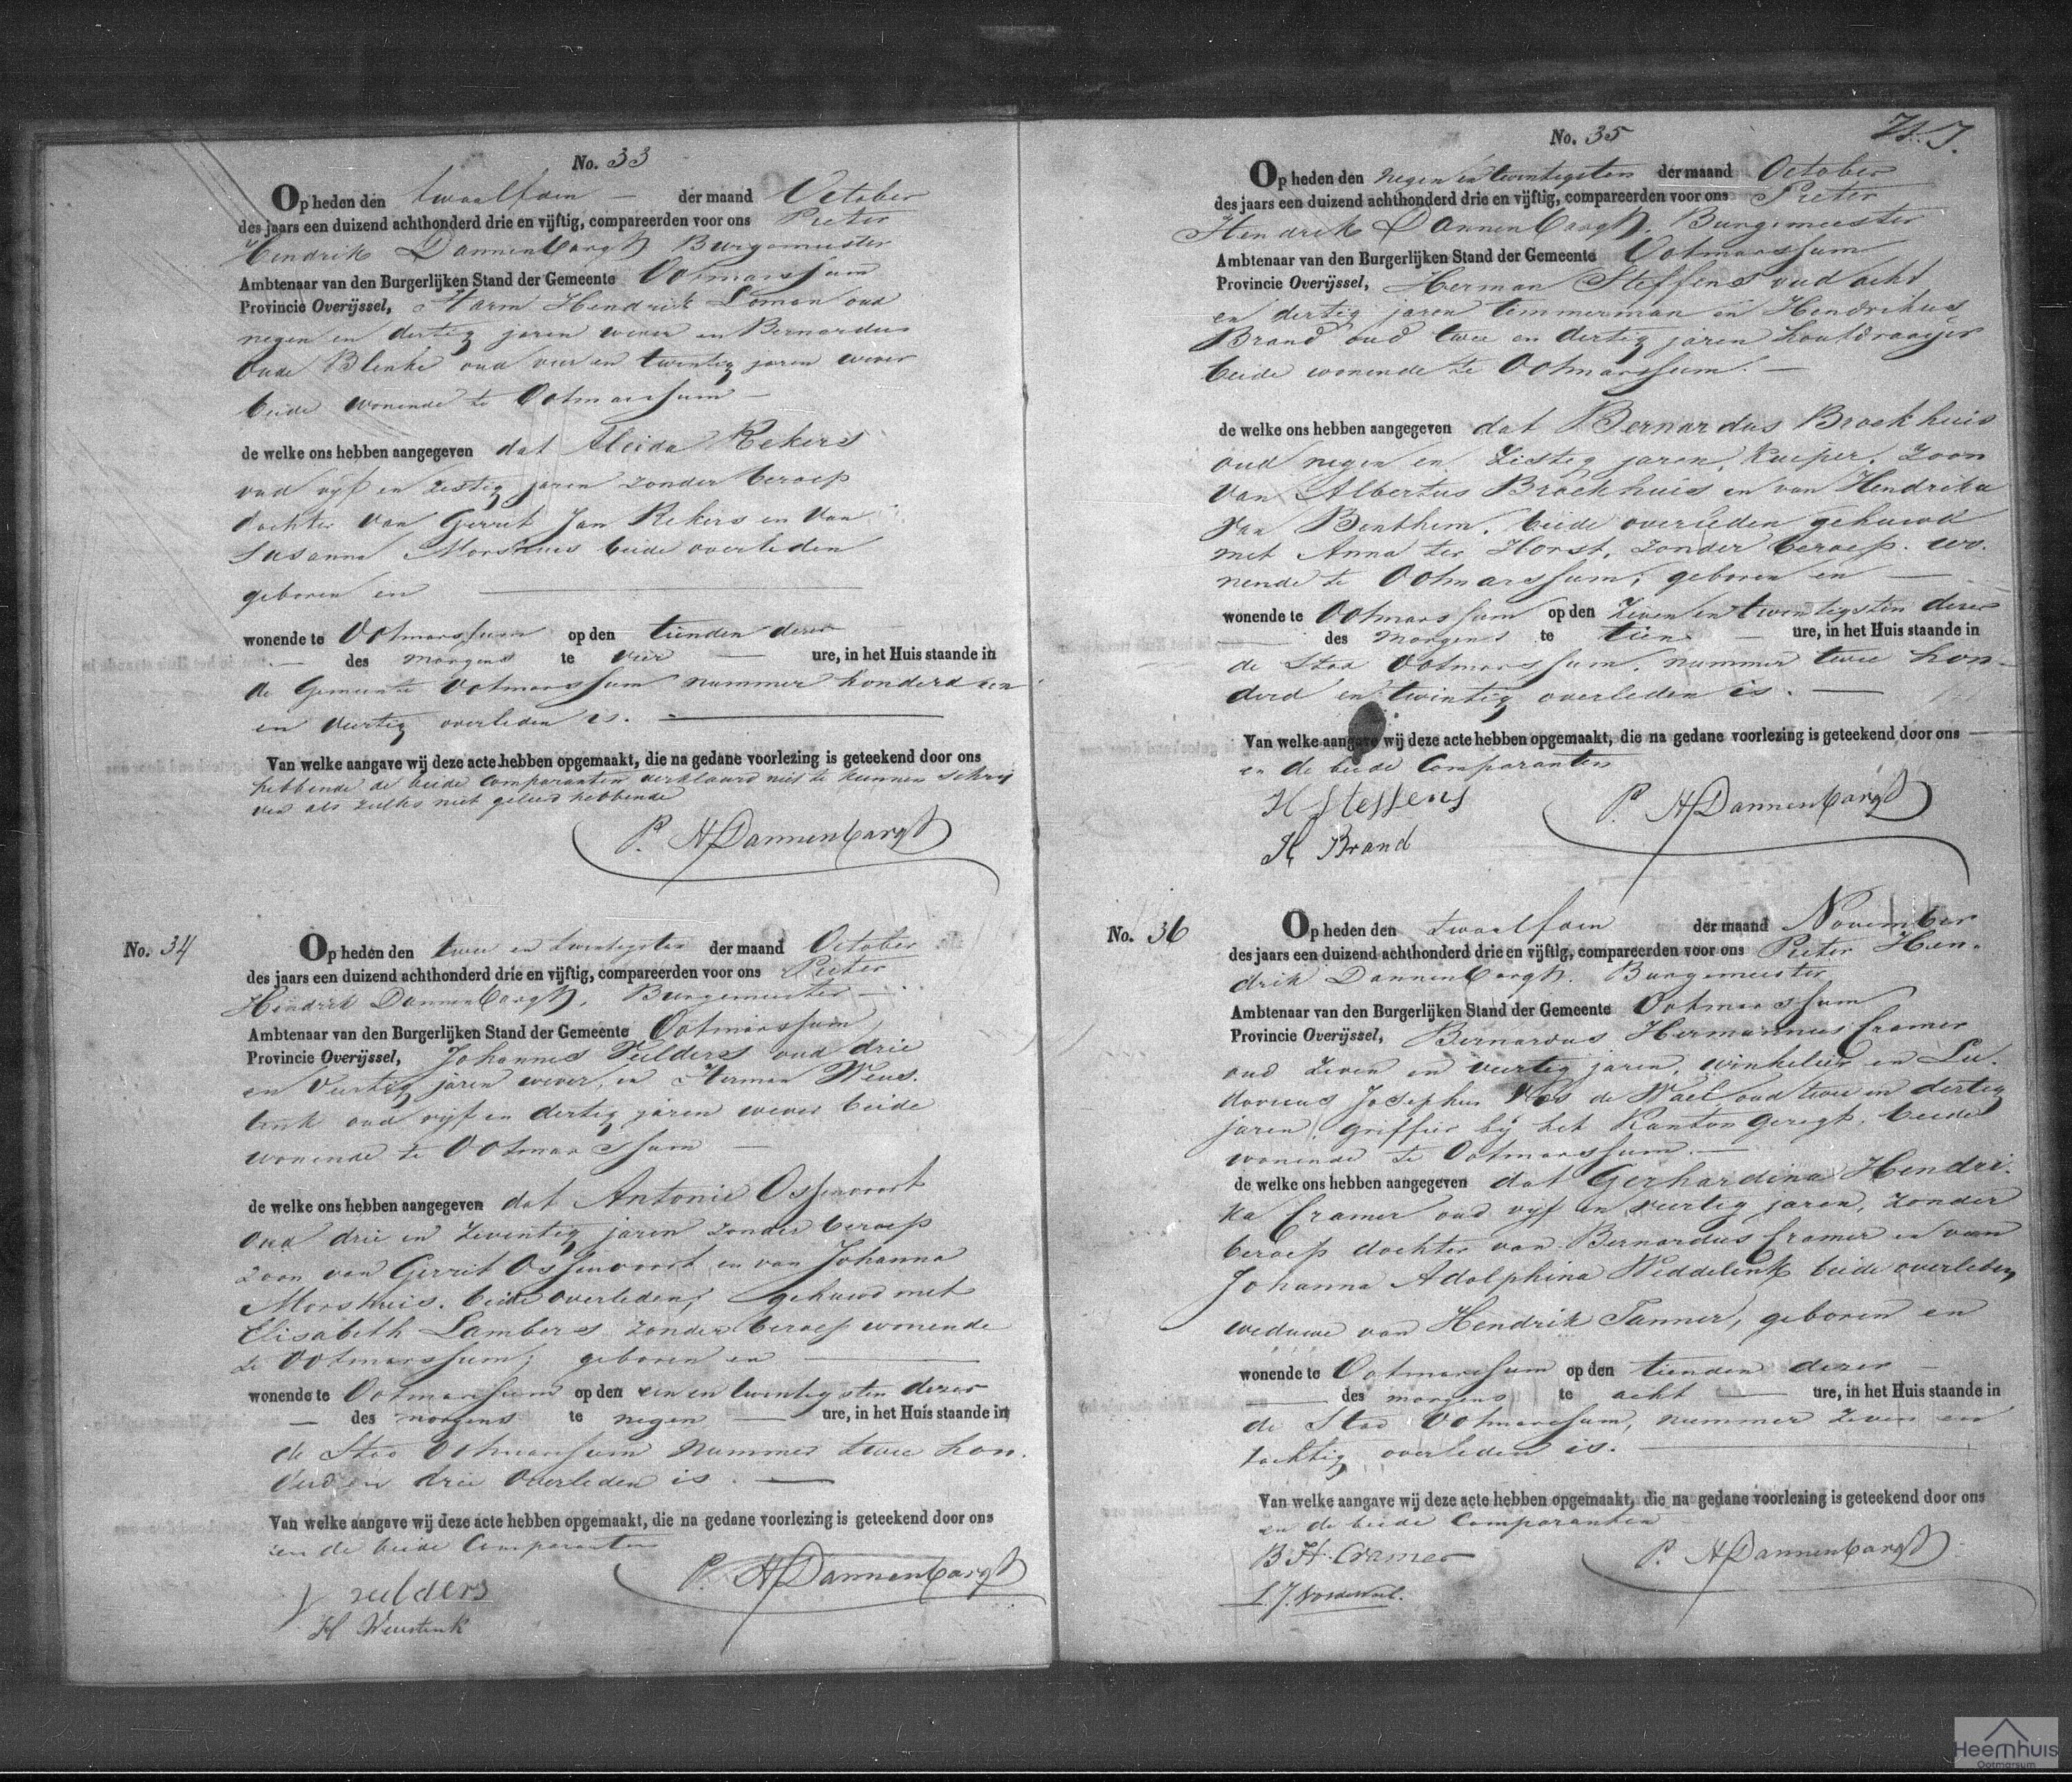 No. 33
Op heden den twaalfden der maand October
des jaars een duizend achthonderd drie en vijftig, compareerden voor ons Pieter
Hendrik Dannenbargh Burgemeester
Ambtenaar van den Burgerlijken Stand der Gemeente Ootmarssum
Provincie Overijssel, Harm Hendrik Loman oud
negen en dertig jaren wever en Bernardus
Oude Blenke oud vier en twintig jaren wever
beide wonende te Ootmarssum
de welke ons hebben aangegeven dat Aleida Rekers
oud vijf en zestig jaren zonder beroep
dochter van Gerrit Jan Rekers en van
Susanna Morshuis beide overleden
geboren en
wonende te Ootmarssum op den tienden dezer
des morgens te vier ure, in het Huis staande in
de Gemeente Ootmarssum nummer honderd een
en veertig overleden is.
Van welke aangave wij deze acte hebben opgemaakt, die na gedane voorlezing is geteekend door ons
hebbende de beide Comparanten verklaard niet te kunnen schrij
ven als zulks niet geleerd hebbende
P. H Dannenbargh
No. 34
Op heden den twee en twintigsten der maand October
des jaars een duizend achthonderd drie en vijftig, compareerden voor ons Pieter
Hendrik Dannenbargh, Burgemeester
Ambtenaar van den Burgerlijken Stand der Gemeente Ootmarssum
Provincie Overijssel, Johannes Veelders oud drie
en veertig jaren wever, en Herman Weus-
tink oud vijf en dertig jaren wever beide
wonende te Ootmarssum
de welke ons hebben aangegeven dat Antonie Ossenvoort
oud drie en zeventig jaren zonder beroep
zoon van Gerrit Ossenvoort en van Johanna
Morshuis, beide overleden; gehuwd met
Elisabeth Lambers zonder beroep wonende
te Ootmarssum; geboren en
wonende te Ootmarssum op den een en twintigsten dezer
des morgens te negen ure, in het Huis staande in
de Stad Ootmarssum nummer twee hon-
derd en drie overleden is.
Van welke aangave wij deze acte hebben opgemaakt, die na gedane voorlezing is geteekend door ons
en de beide Comparanten
P. H Dannenbargh
H Weustink
No. 35
Op heden den negen en twintigsten der maand October
des jaars een duizend achthonderd drie en vijftig, compareerden voor ons Pieter
Hendrik Dannenbargh, Burgemeester
Ambtenaar van den Burgerlijken Stand der Gemeente Ootmarssum
Provincie Overijssel, Herman Steffens oud acht
en dertig jaren timmerman en Hendrikus
Brand oud twee en dertig jaren houtdraaijer
beide wonende te Ootmarssum.
de welke ons hebben aangegeven dat Bernardus Broekhuis
oud negen en zestig jaren, kuiper, zoon
van Albertus Broekhuis en van Hendrika
van Benthem, beide overleden gehuwd
met Anna ter Horst, zonder beroep, wo-
nende te Ootmarssum; geboren en
wonende te Ootmarssum op den zeven en twintigsten dezer
des morgens te tien ure, in het Huis staande in
de Stad Ootmarssum, nummer twee hon-
derd en twintig overleden is.
Van welke aangave wij deze acte hebben opgemaakt, die na gedane voorlezing is geteekend door ons
en de beide Comparanten
H Steffens
P. H Dannenbargh
H Brand
No. 36
Op heden den twaalfden der maand November
des jaars een duizend achthonderd drie en vijftig, compareerden voor ons Pieter Hen-
drik Dannenbargh, Burgemeester
Ambtenaar van den Burgerlijken Stand der Gemeente Ootmarssum
Provincie Overijssel, Bernardus Hermannus Cramer
oud zeven en veertig jaren, winkelier en Lu-
dovicus Josephus Vos de Wael oud twee en dertig
jaren, griffier bij het Kanton geregt, beide
wonende te Ootmarssum.
de welke ons hebben aangegeven dat Gerhardina Hendri-
ka Cramer oud vijf en veertig jaren, zonder
beroep dochter van Bernardus Cramer en van
Johanna Adolphina Weddelink beide overleden
weduwe van Hendrik Tanner, geboren en
wonende te Ootmarssum op den tienden dezer
des morgens te acht ure, in het Huis staande in
de Stad Ootmarssum, nummer zeven en
tachtig overleden is.
Van welke aangave wij deze acte hebben opgemaakt, die na gedane voorlezing is geteekend door ons
en de beide Comparanten
B H Cramer
P. H Dannenbargh
L. J. Vosdewael.
Heemhuis
Ootmarsum